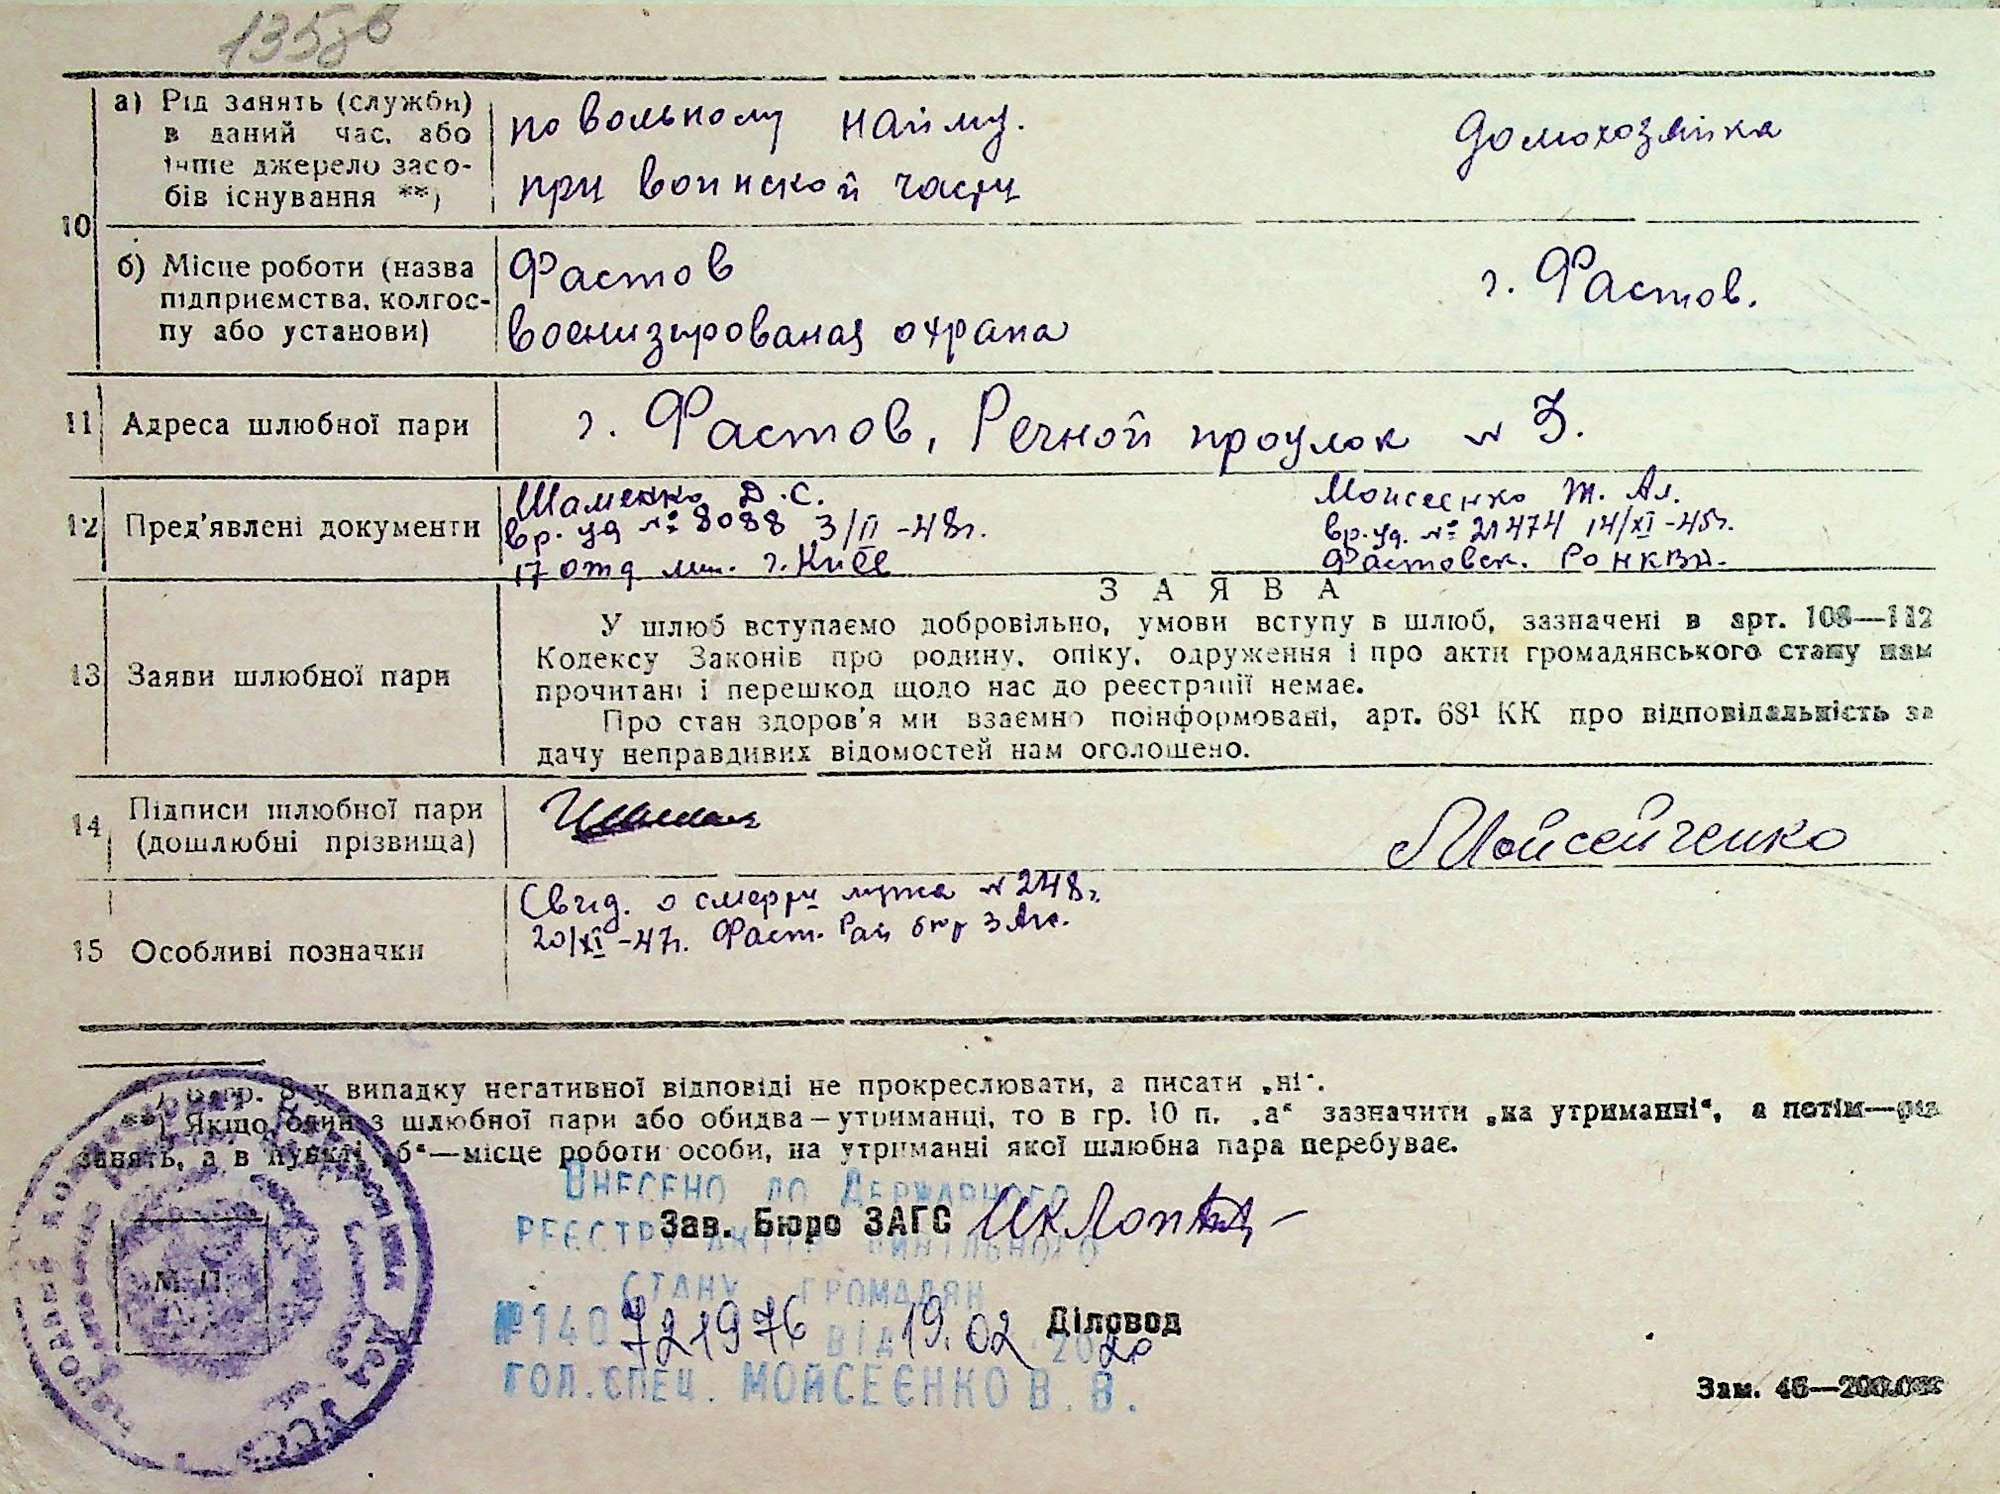 1358в
а) Рід занять (служби)
в даний час, або
інше джерело засо-
бів існування **)
по вольному найму.
при воинской части
домохозяйка
10
б) Місце роботи (назва
підприємства, колгос-
пу або установи)
Фастов
военизированая охрана
г. Фастов.
11 Адреса шлюбної пари
г. Фастов, Речной проулок № 3.
12 Пред'явлені документи
Шаменко Д.С.
вр. уд № 8088 3/II -48г.
17 отд мил. г. Киев
Моисеенко Т. Ал.
вр. уд. № 21474 14/XI -45г.
Фастовск. РОНКВД.
13 Заяви шлюбної пари
ЗАЯВА
У шлюб вступаємо добровільно, умови вступу в шлюб, зазначені в арт. 108—112
Кодексу Законів про родину, опіку, одруження і про акти громадянського стану нам
прочитані і перешкод щодо нас до реєстрації немає.
Про стан здоров'я ми взаємно поінформовані, арт. 68¹ КК про відповідальність за
дачу неправдивих відомостей нам оголошено.
14 Підписи шлюбної пари
(дошлюбні прізвища)
Мойсейченко
15 Особливі позначки
Свид. о смерти мужа № 248г.
20/XI -47г. Фаст. Рай бюр ЗАГС.
гр. 8 у випадку негативної відповіді не прокреслювати, а писати „ні".
**) Якщо один з шлюбної пари або обидва—утриманці, то в гр. 10 п. „а" зазначити „на утриманні", а потім—рід
занять, а в пункті „б"—місце роботи особи, на утриманні якої шлюбна пара перебуває.
ВНЕСЕНО ДО ДЕРЖАВНОГО
Зав. Бюро ЗАГС
РЕЄСТРУ АКТІВ ЦИВІЛЬНОГО
СТАНУ ГРОМАДЯН
М. П.
Діловод
№ 140721976 ВІД 19.02 2020
ГОЛ. СПЕЦ. МОЙСЕЄНКО В. В.
Зам. 46—200.000